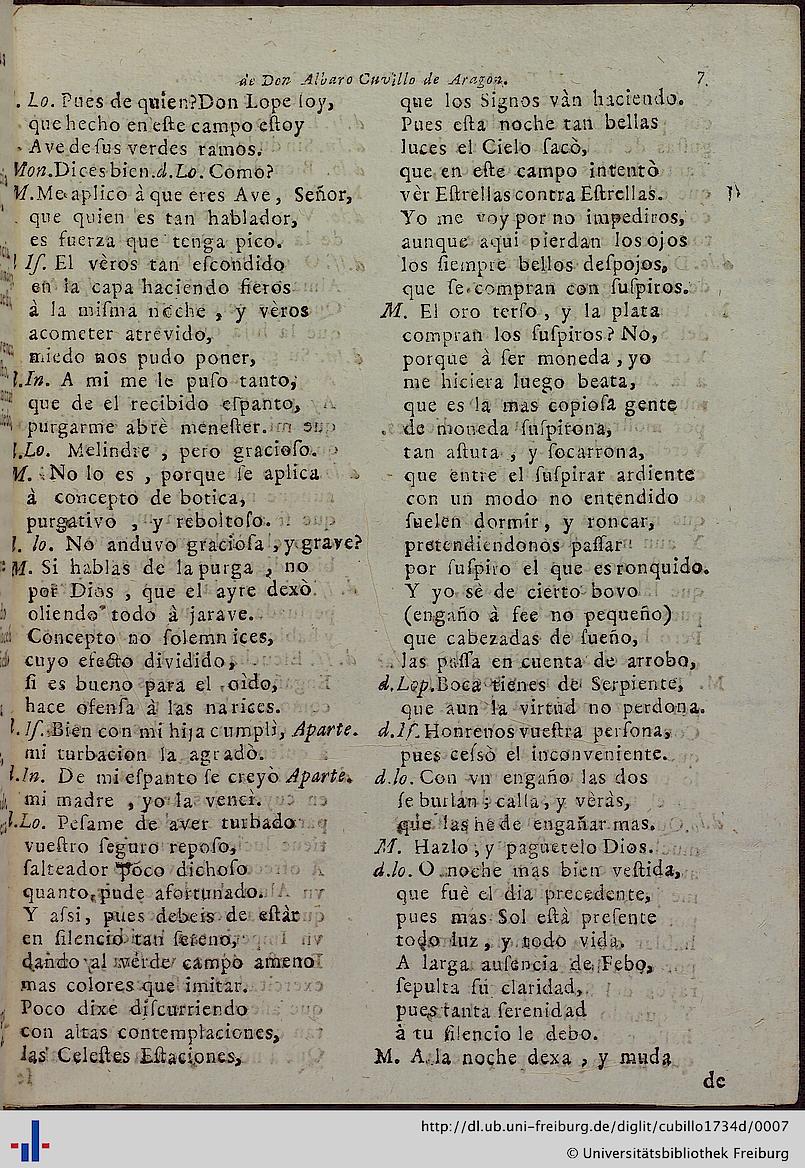 de Don Alvaro Cuvillo de Aragon. 7.
. Lo. Pues de quien? Don Lope ſoy,
que hecho en eſte campo eſtoy
Ave de ſus verdes ramos.
Mon. Dices bien. d. Lo. Como?
M. Me aplicò à que eres Ave, Señor,
que quien es tan hablador,
es fuerza que tenga pico.
l. Iſ. El vèros tan eſcondido
en la capa haciendo fieros
à la miſma noche , y vèros
acometer atrevido,
miedo nos pudo poner,
l. In. A mi me le puſo tanto,
que de el recibido eſpanto,
purgarme abrè meneſter.
l. Lo. Melindre , pero gracioſo.
M. No lo es , porque ſe aplica
à concepto de botica,
purgativo , y reboltoſo.
l. lo. No anduvo gracioſa , y grave?
M. Si hablas de la purga , no
por Dios , que el ayre dexò
oliendo todo à jarave.
Concepto no ſolemnices,
cuyo efecto dividido,
ſi es bueno para el oìdo,
hace ofenſa à las narices.
l. Iſ. Bien con mi hija cumplì, Aparte.
mi turbacion la agradò.
l. In. De mi eſpanto ſe creyò Aparte.
mi madre , yo la vencì.
l. Lo. Peſame de aver turbado
vueſtro ſeguro repoſo,
ſalteador poco dichoſo
quanto pude afortunado.
Y aſsi, pues debeis de eſtàr
en ſilencio tan ſereno,
dando al verde campo ameno
mas colores que imitar.
Poco dixe diſcurriendo
con altas contemplaciones,
las Celeſtes Eſtaciones,
que los Signos vàn haciendo.
Pues eſta noche tan bellas
luces el Cielo ſacò,
que en eſte campo intentò
vèr Eſtrellas contra Eſtrellas.
Yo me voy por no impediros,
aunque aqui pierdan los ojos
los ſiempre bellos deſpojos,
que ſe compran con ſuſpiros.
M. El oro terſo , y la plata
compran los ſuſpiros? No,
porque à ſer moneda , yo
me hiciera luego beata,
que es la mas copioſa gente
de moneda ſuſpirona,
tan aſtuta , y ſocarrona,
que entre el ſuſpirar ardiente
con un modo no entendido
ſuelen dormir, y roncar,
pretendiendonos paſſar
por ſuſpiro el que es ronquido.
Y yo sè de cierto bovo
(engaño à fee no pequeño)
que cabezadas de ſueño,
las paſſa en cuenta de arrobo,
d. Lop. Boca tienes de Serpiente,
que aun la virtud no perdona.
d. Iſ. Honrenos vueſtra perſona,
pues ceſsò el inconveniente.
d. lo. Con vn engaño las dos
ſe burlan ; calla, y veràs,
que las hè de engañar mas.
M. Hazlo , y paguetelo Dios.
d. lo. O noche mas bien veſtida,
que fuè el dia precedente,
pues mas Sol eſtà preſente
todo luz , y todo vida.
A larga auſencia de Febo,
ſepulta ſu claridad,
pues tanta ſerenidad
à tu ſilencio le debo.
M. A la noche dexa , y muda
de
http://dl.ub.uni-freiburg.de/diglit/cubillo1734d/0007
© Universitätsbibliothek Freiburg